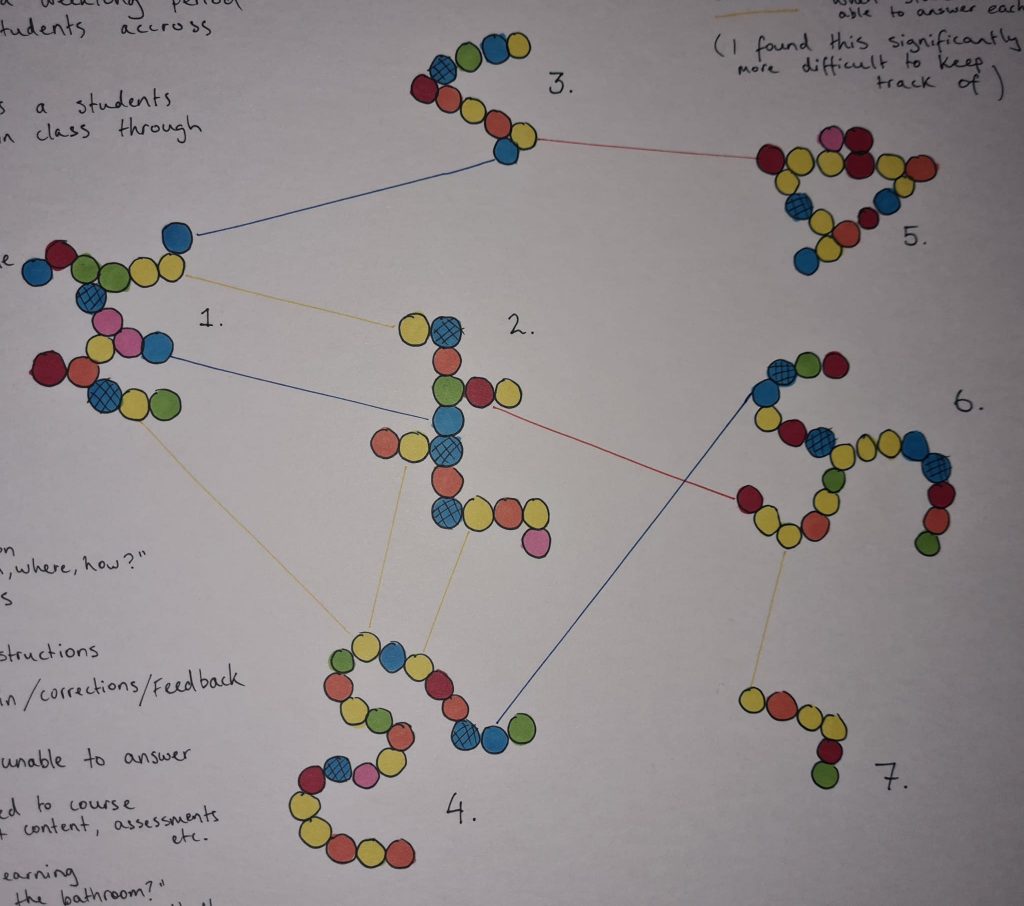 a weeklong period
tudents accross
s a students
n class through
able to answer each
(I found this significantly
more difficult to keep
track of)
3.
5.
1.
2.
6.
on
, where, how?"
s
structions
in/corrections/Feedback
unable to answer
ed to course
t content, assessments
etc.
earning
the bathroom?"
4.
7.